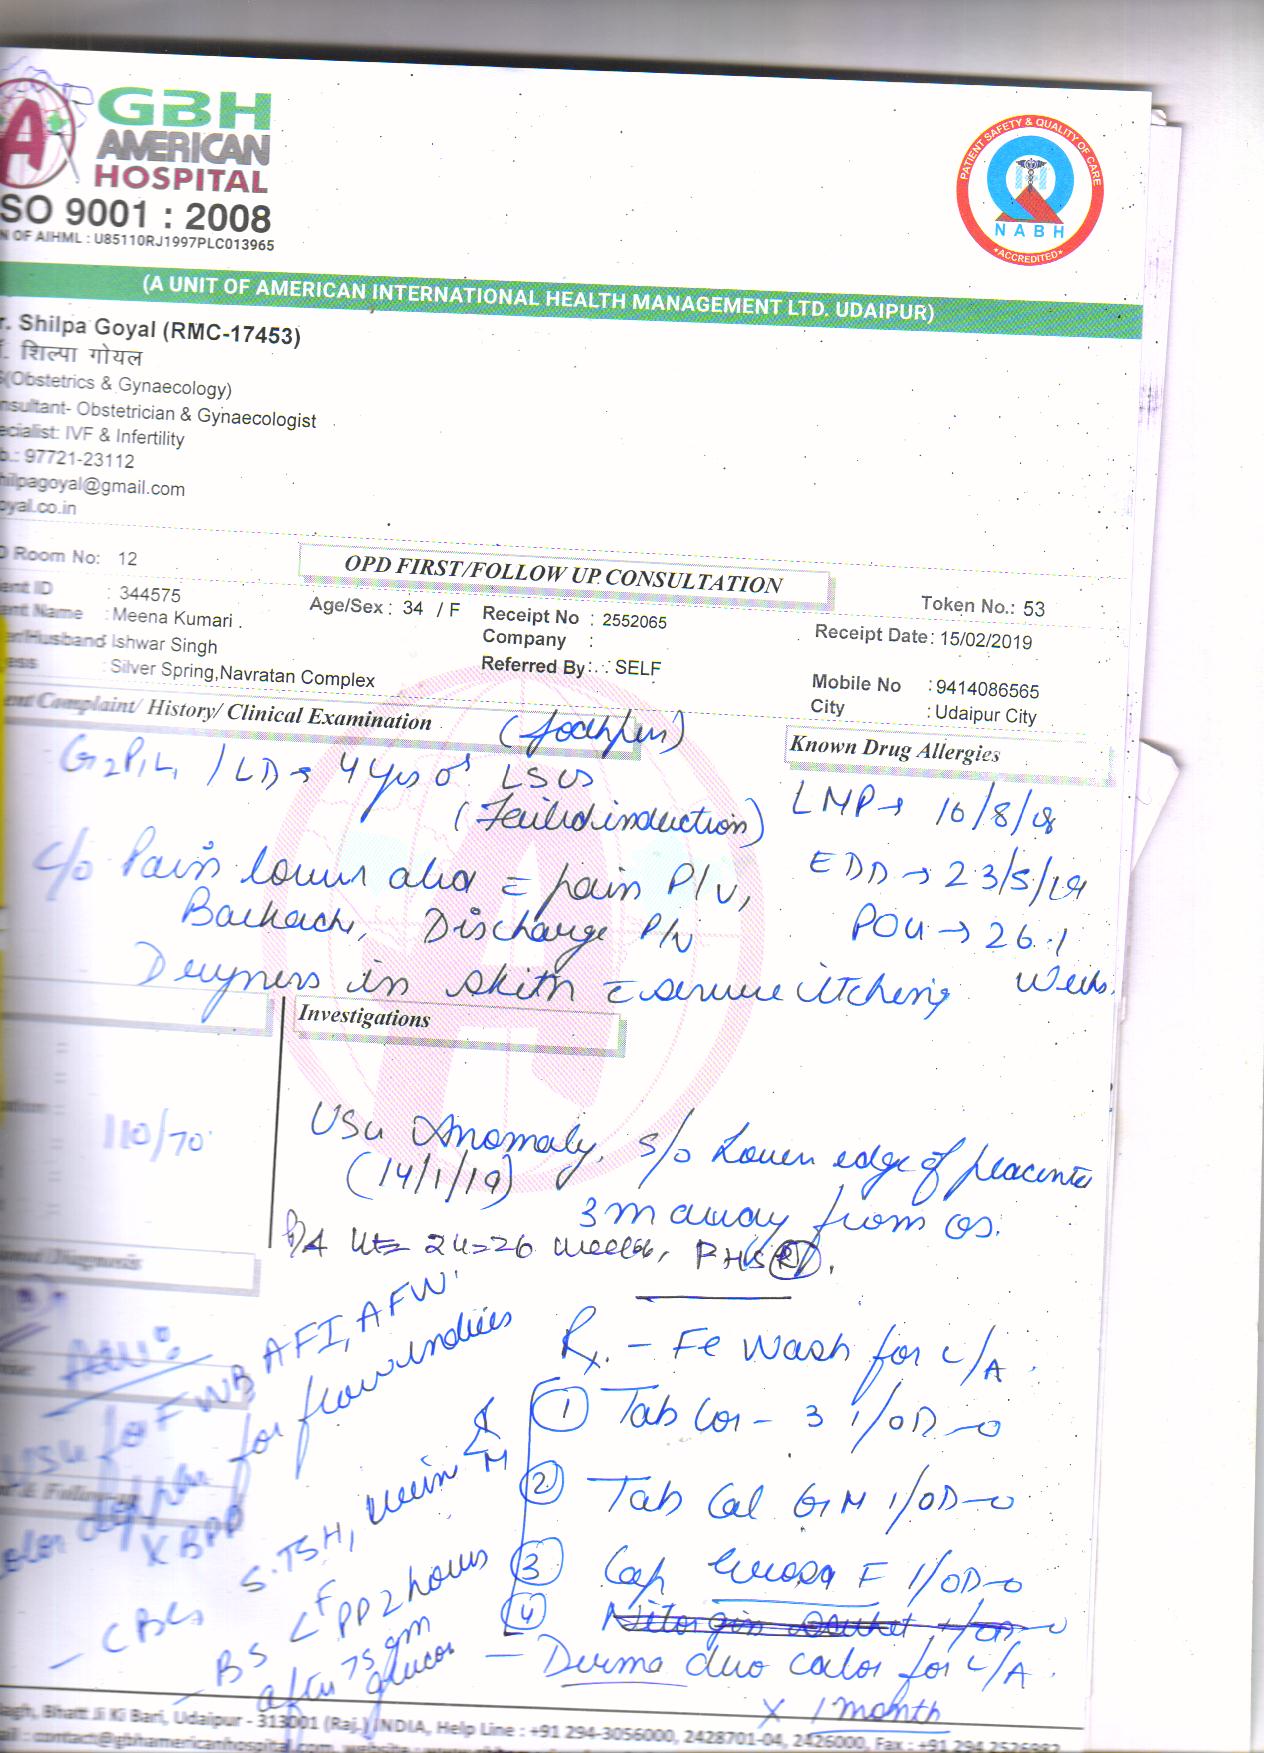 GBH
AMERICAN
HOSPITAL
SO 9001 : 2008
N OF AIHML : U85110RJ1997PLC013965
PATIENT SAFETY & QUALITY OF CARE
NABH
ACCREDITED
(A UNIT OF AMERICAN INTERNATIONAL HEALTH MANAGEMENT LTD. UDAIPUR)
r. Shilpa Goyal (RMC-17453)
शिल्पा गोयल
(Obstetrics & Gynaecology)
nsultant- Obstetrician & Gynaecologist
ecialist: IVF & Infertility
b.: 97721-23112
hilpagoyal@gmail.com
oyal.co.in
Room No: 12
OPD FIRST/FOLLOW UP CONSULTATION
Token No.: 53
ent ID : 344575
Age/Sex : 34 / F
Receipt No : 2552065
Receipt Date: 15/02/2019
ent Name : Meena Kumari .
Company :
er/Husband Ishwar Singh
Referred By: SELF
Mobile No : 9414086565
ess : Silver Spring,Navratan Complex
City : Udaipur City
ent Complaint/ History/ Clinical Examination
(Jodhpur)
Known Drug Allergies
G2P1L1 / LD → 4 yrs LSCS
(Failed induction)
LMP → 16/8/18
c/o Pain lower abd = pain P/V,
EDD → 23/5/19
Backache, Discharge P/V
POG → 26.1
Weeks.
in = severe itching
Investigations
110/70
USG Anomaly, s/o Lower edge of placenta
(14/1/19)
3 away from os.
P/A Ut = 24-26 weeks, FHS (R).
Diagnosis
Adv:
for FWB AFI, AFW
color for flow indices
X BPP
- CBC, S.TSH, Urine R/M
- BS < F PP 2 hours
after 75 gm
glucose
Rx. - wash for L/A.
1 Tab Cor - 3 1/OD
2 Tab Cal GM 1/OD
3 Cap F 1/OD
4
- Derma duo for L/A.
x 1 month
agh, Bhatt Ji Ki Bari, Udaipur - 313001 (Raj.) INDIA, Help Line : +91 294-3056000, 2428701-04, 2426000, Fax : +91 294 2526982
ail : contact@gbhamericanhospital.com,